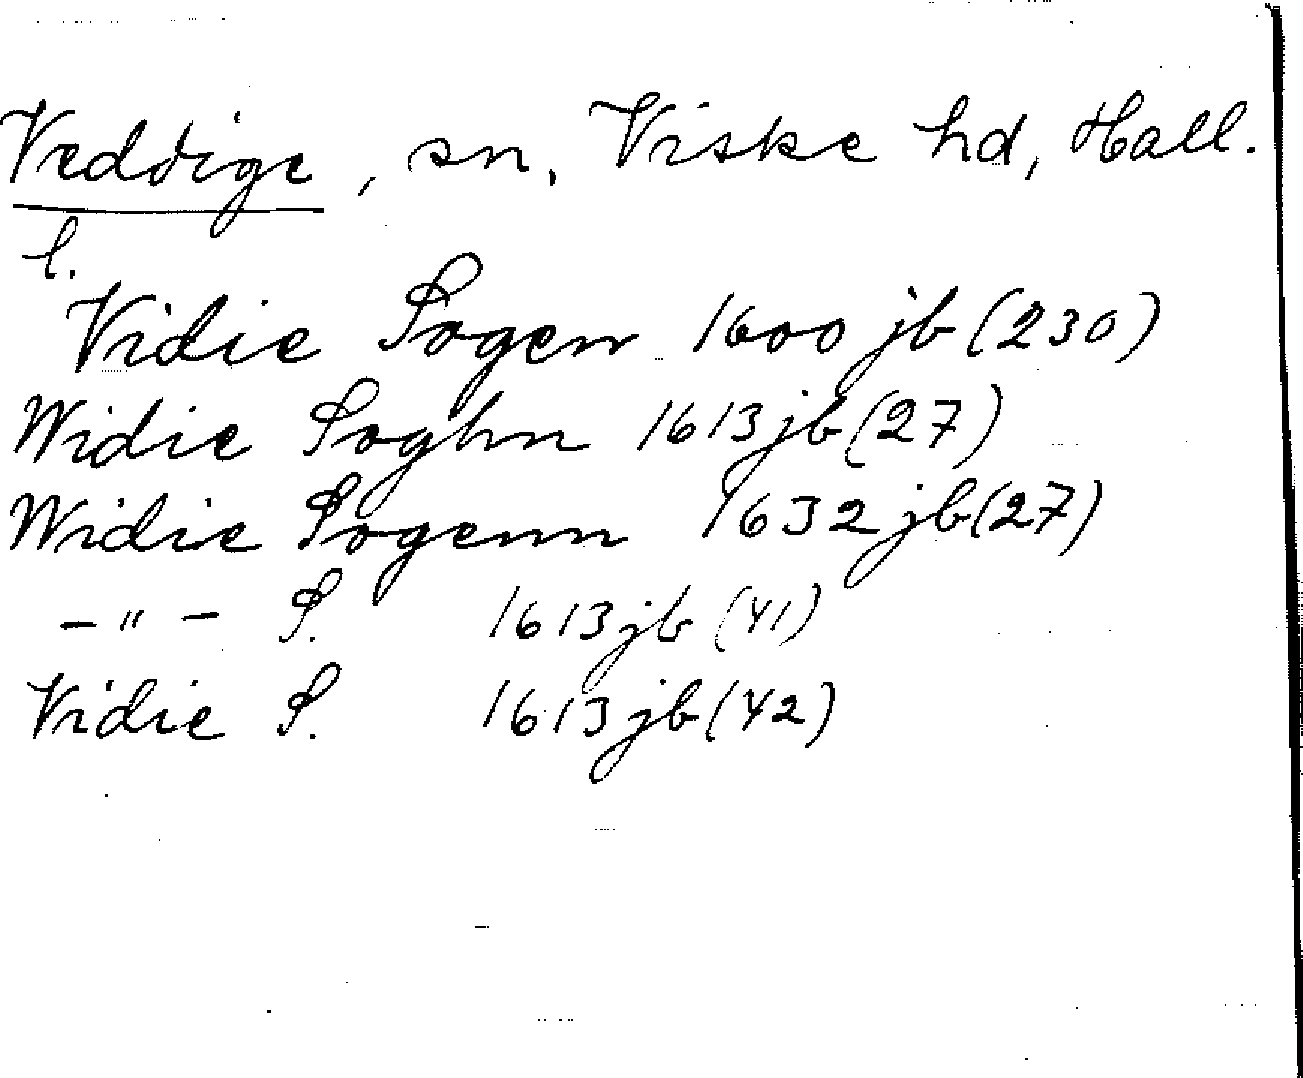 Veddige, sn, Viske hd, Hall.
l.
Vidie Sogen 1600 jb (230)
Widie Soghn 1613 jb (27)
Widie Sogenn 1632 jb (27)
- " - S. 1613 jb (41)
Vidie S. 1613 jb (42)